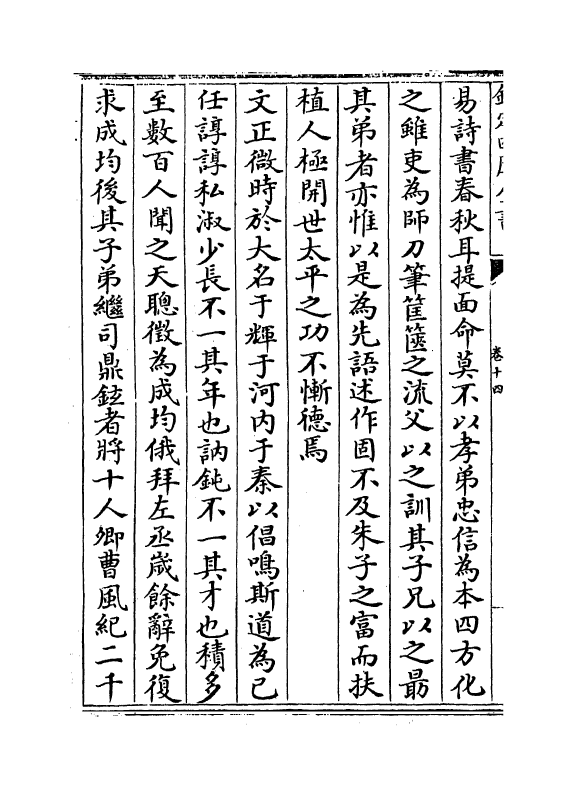 欽定四庫全書
卷十四
易詩書春秋耳提面命莫不以孝弟忠信為本四方化
之雖吏為師刀筆筐篋之流父以之訓其子兄以之最
其弟者亦惟以是為先語述作固不及朱子之富而扶
植人極開世太平之功不慚德焉
文正微時於大名于輝于河内于秦以倡鳴斯道為已
任諄諄私淑少長不一其年也訥鈍不一其才也積多
至數百人聞之天聰徵為成均俄拜左丞嵗餘辭免復
求成均後其子弟繼司鼎鉉者將十人卿曹風紀二千